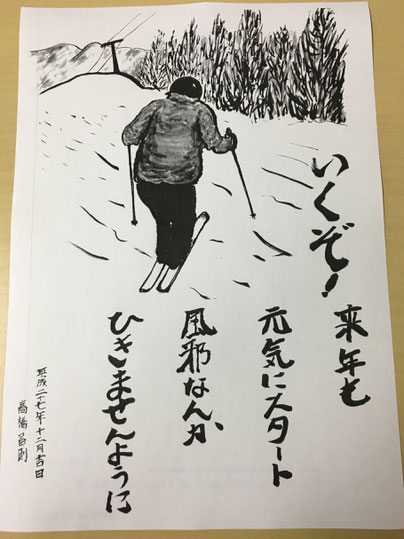 いくぞ!
来年も
元気にスタート
風邪なんか
ひきませんように
平成二十七年十二月吉日
高橋昌則